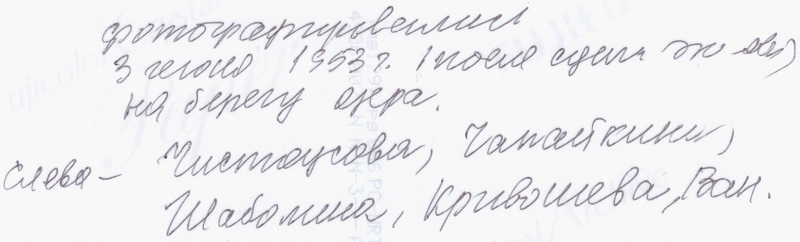 фотографировались
3 июня 1953 г. (после сдачи экз)
на берегу озера.
Слева – Чистоусова, Чапайкина,
Шаболина, Кривошева, Ван.